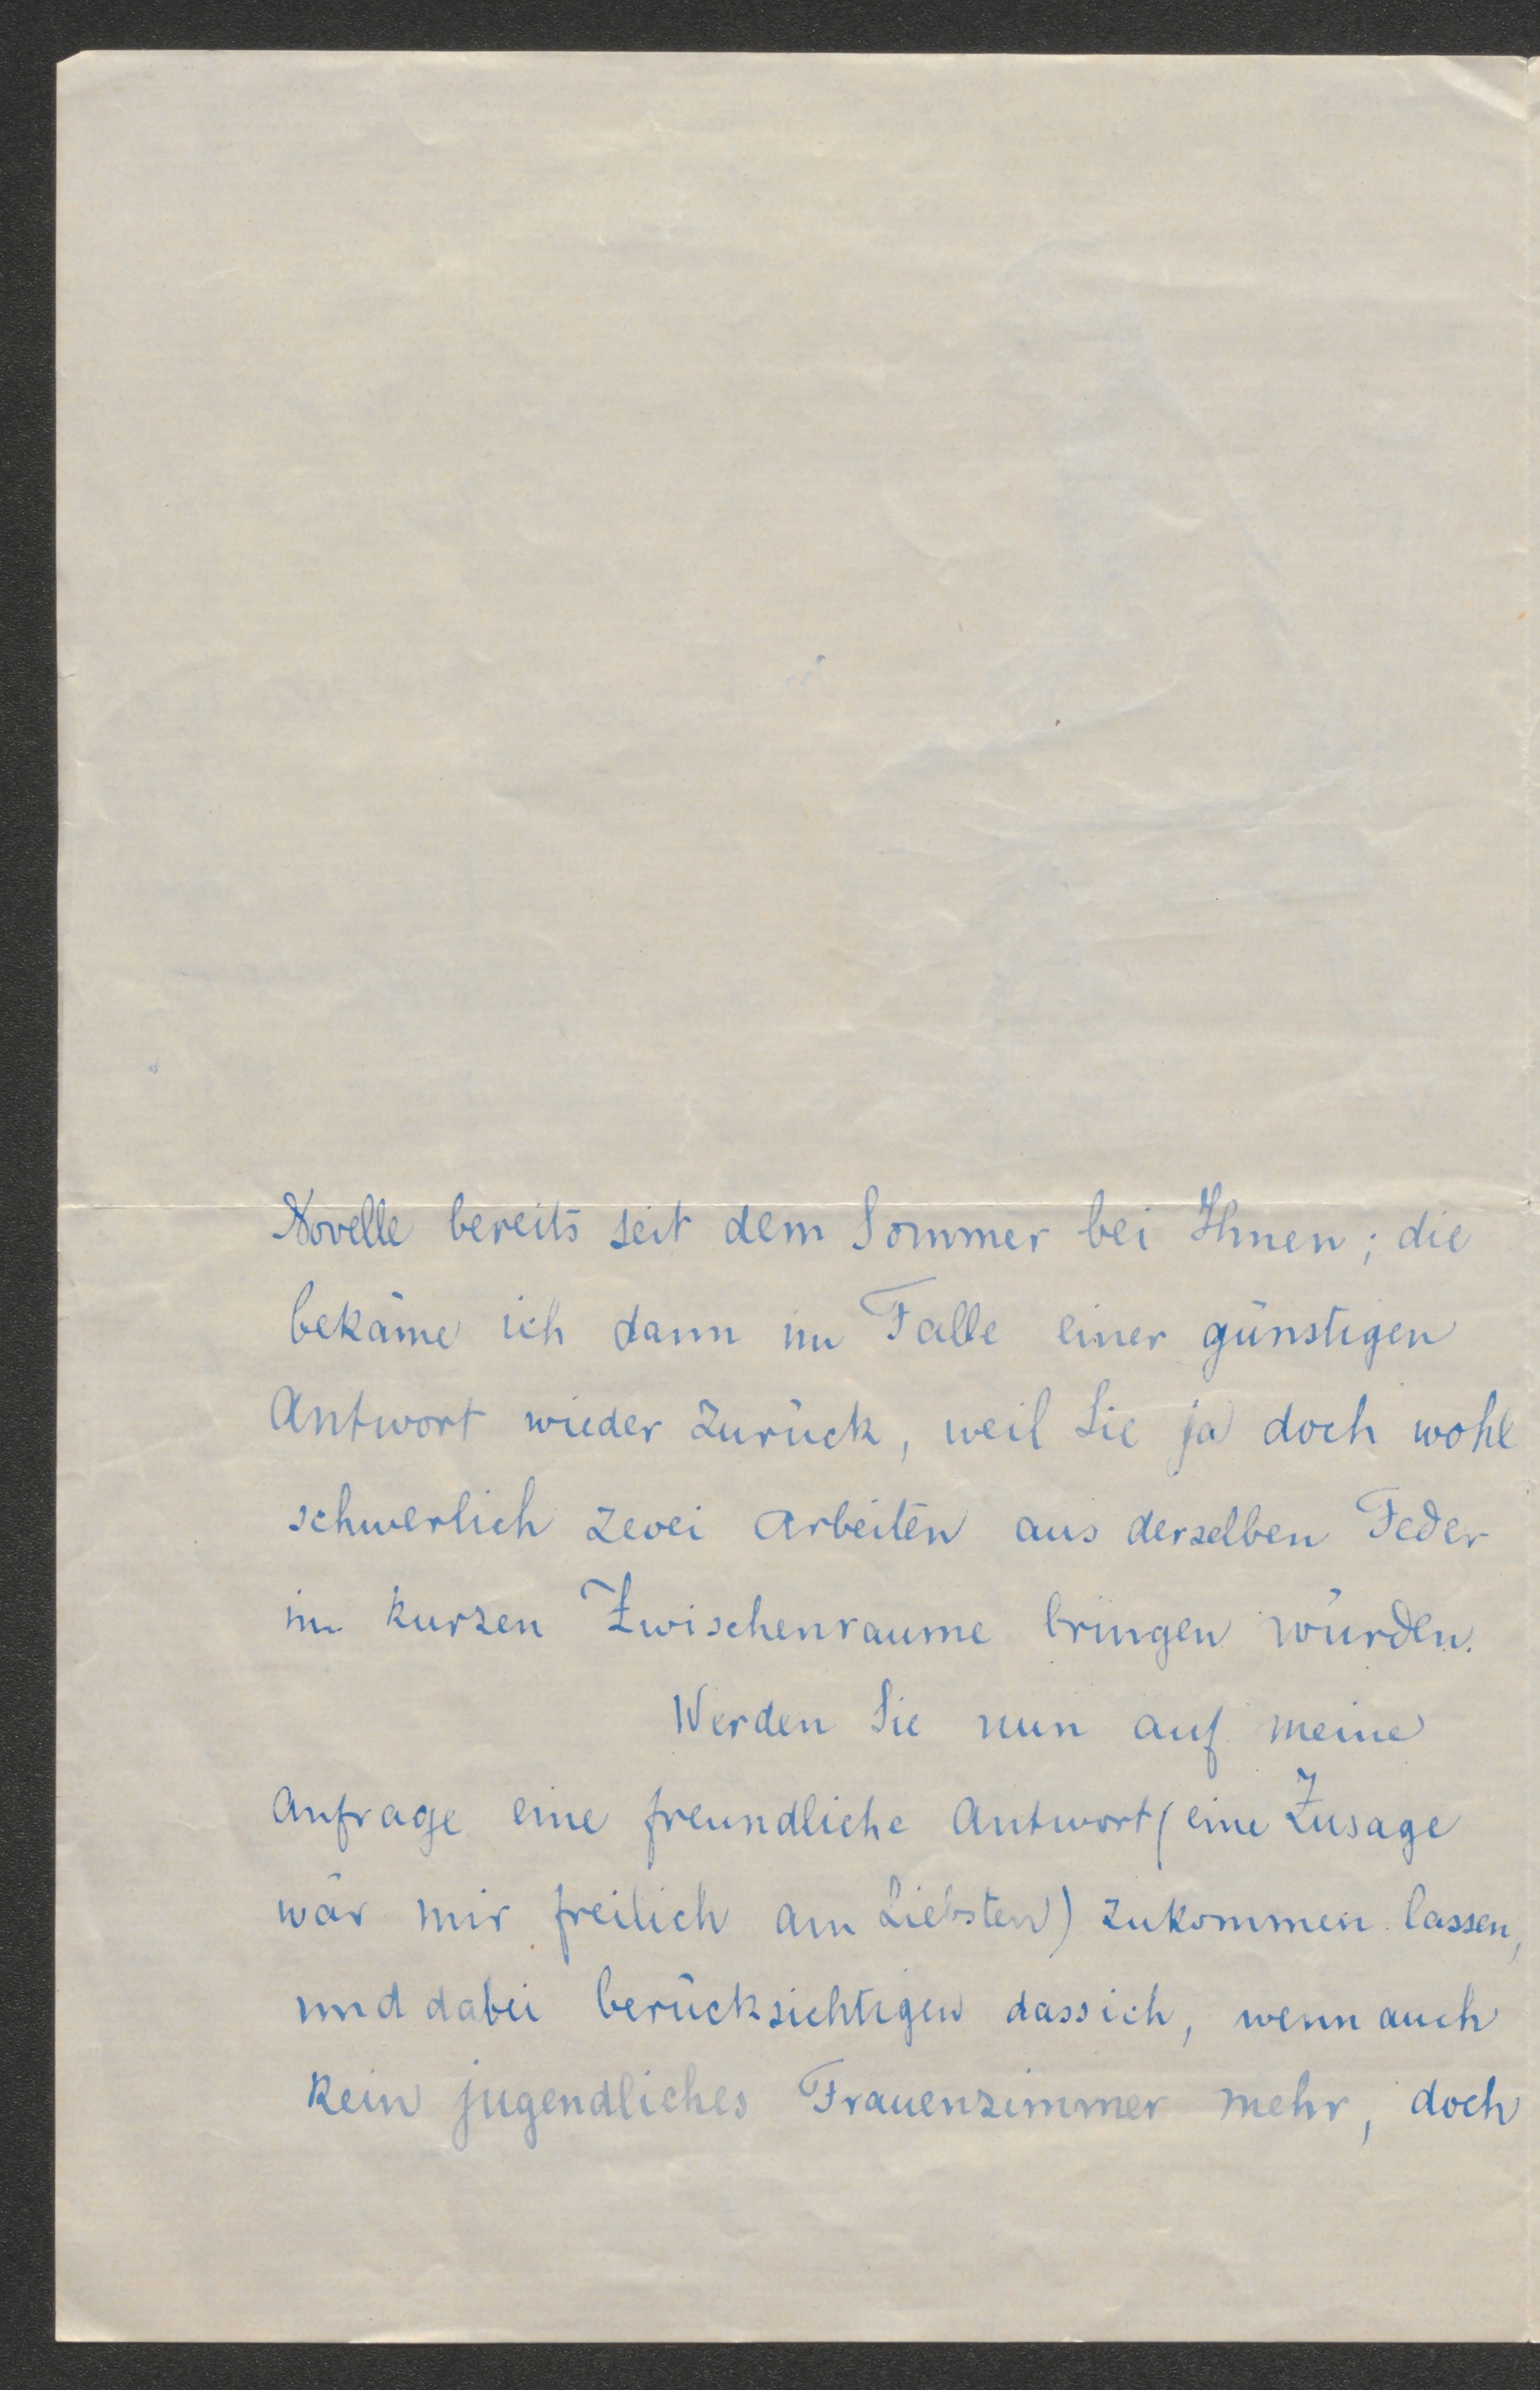 Novelle bereits seit dem Sommer bei Ihnen; die
bekäme ich dann im Falle einer günstigen
Antwort wieder zurück, weil Sie ja doch wohl
schwerlich zwei Arbeiten aus derselben Feder
in kurzen Zwischenraume bringen würden.
Werden Sie nun auf meine
Anfrage eine freundliche Antwort (eine Zusage
wär mir freilich am Liebsten) zukommen lassen,
und dabei berücksichtigen dass ich, wenn auch
kein jugendliches Frauenzimmer mehr, doch